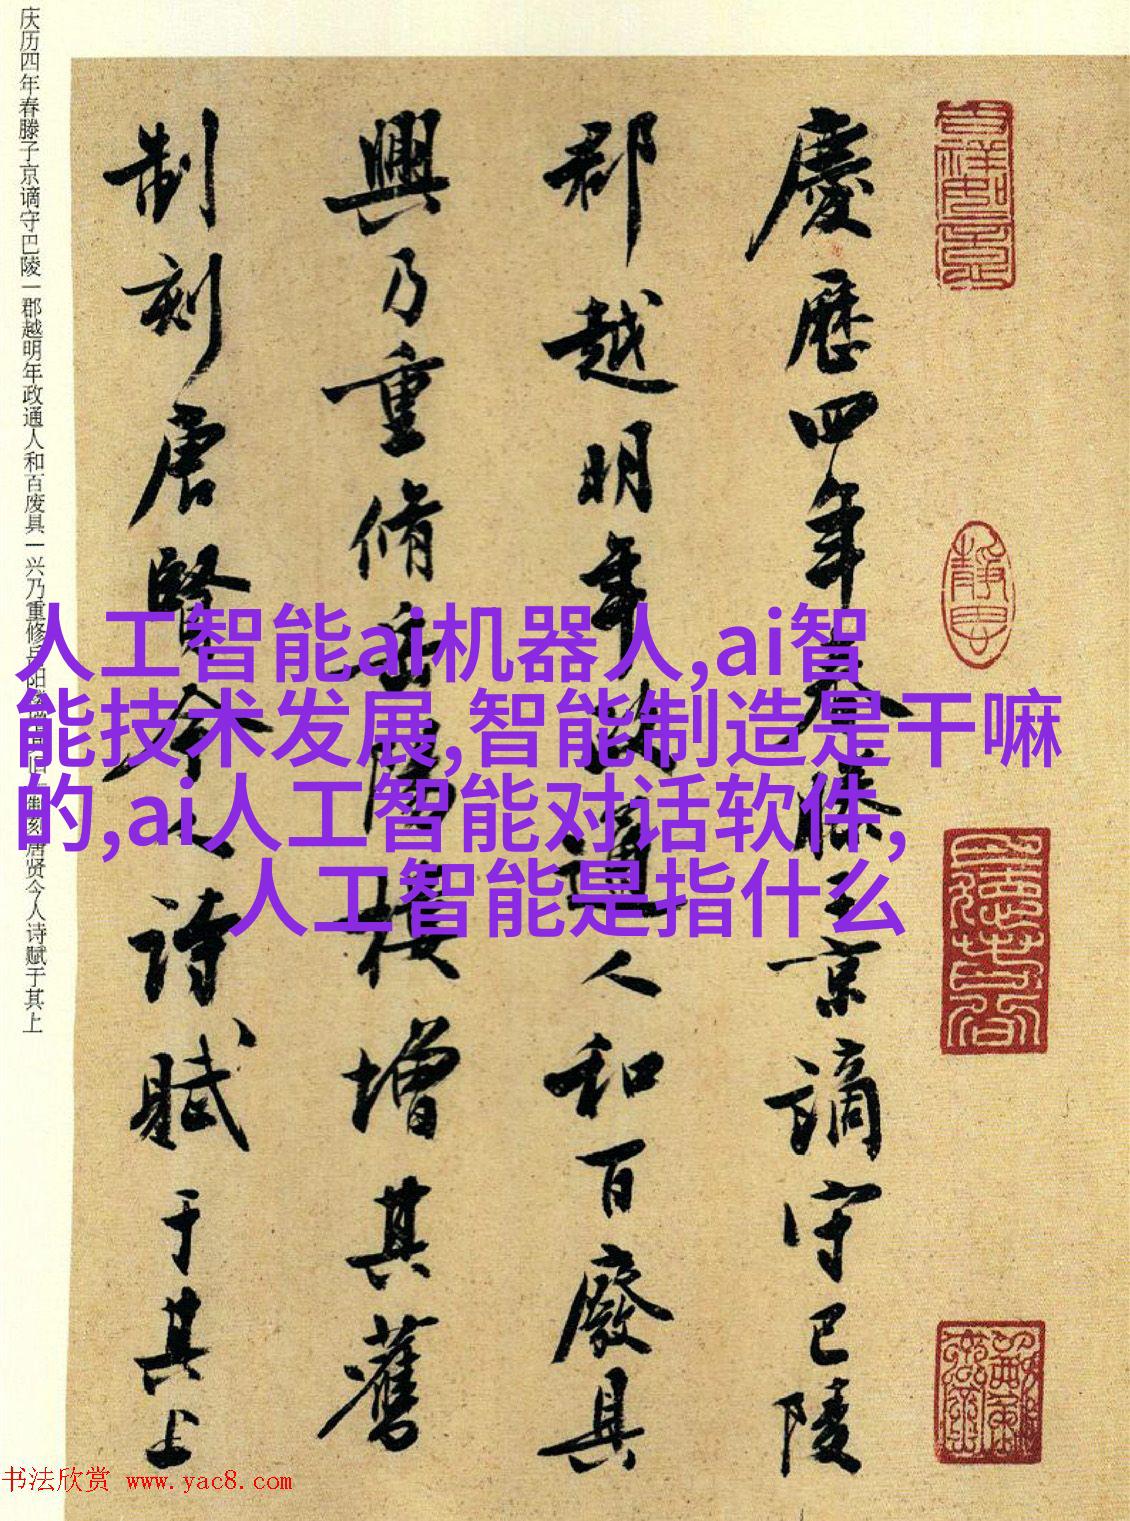 慶歷四年春滕子京謫守巴陵
郡越明年政通人和百廢具
興乃重脩岳陽樓增其舊
制刻唐賢今人詩賦于其上
庆历四年春滕子京谪守巴陵一郡越明年政通人和百废具一兴乃重修岳阳楼增其旧一制刻唐贤今人诗赋于其上
人工智能ai机器人,ai智
能技术发展,智能制造是干嘛
的,ai人工智能对话软件,
人工智能是指什么
书法欣赏 www.yac8.com